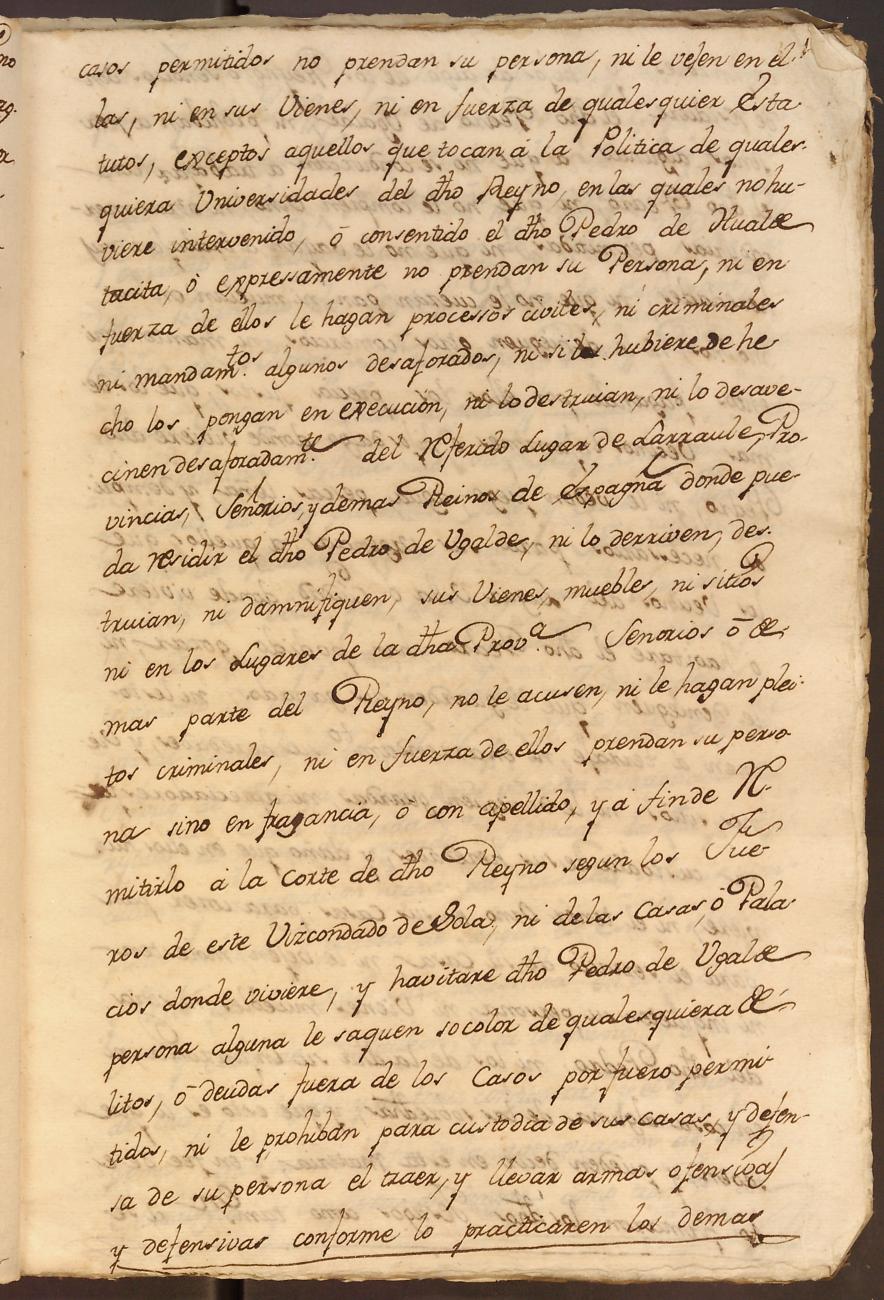 casos permitidos no prendan su persona, ni le vejen en el
las, ni en sus Vienes, ni en fuerza de qualesquier Esta
tutos, exceptos aquellos que tocan á la Politica de quales-
quiera Universidades del dho Reyno, en las quales no hu-
viere intervenido, ó consentido el dho Pedro de Hualde
tacita, ó expressamente no prendan su Persona, ni en
fuerza de ellos le hagan processos civiles, ni criminales
ni mandam.tos algunos desaforados, ni si los hubiere de he
cho los pongan en execucion, ni lo destruian, ni lo desave-
cinen desaforadam.te del Referido Lugar de Larraule, Pro-
vincias, Señorios, y demas Reinos de España donde pue-
da residir el dho Pedro de Ugalde, ni lo derriven, des-
truian, ni damnifiquen, sus Vienes, muebles, ni sitios
ni en los Lugares de la dha Prov.a Señorios ó de
mas parte del Reyno, no le acusen, ni le hagan plei-
tos criminales, ni en fuerza de ellos prendan su perso
na sino en fragancia, ó con apellido, y á fin de Re-
mitirlo á la Corte de dho Reyno segun los Fue
ros de este Vizcondado de Sola, ni de las Casas, ó Pala
cios donde viviere, y havitare dho Pedro de Ugalde
persona alguna le saquen socolor de qualesquiera de-
litos, ó deudas fuera de los Casos por fuero permi
tidos, ni le prohiban para custodia de sus casas, y defen-
sa de su persona el traer, y llevar armas ofensivas
y defensivas conforme lo practicaren los demas